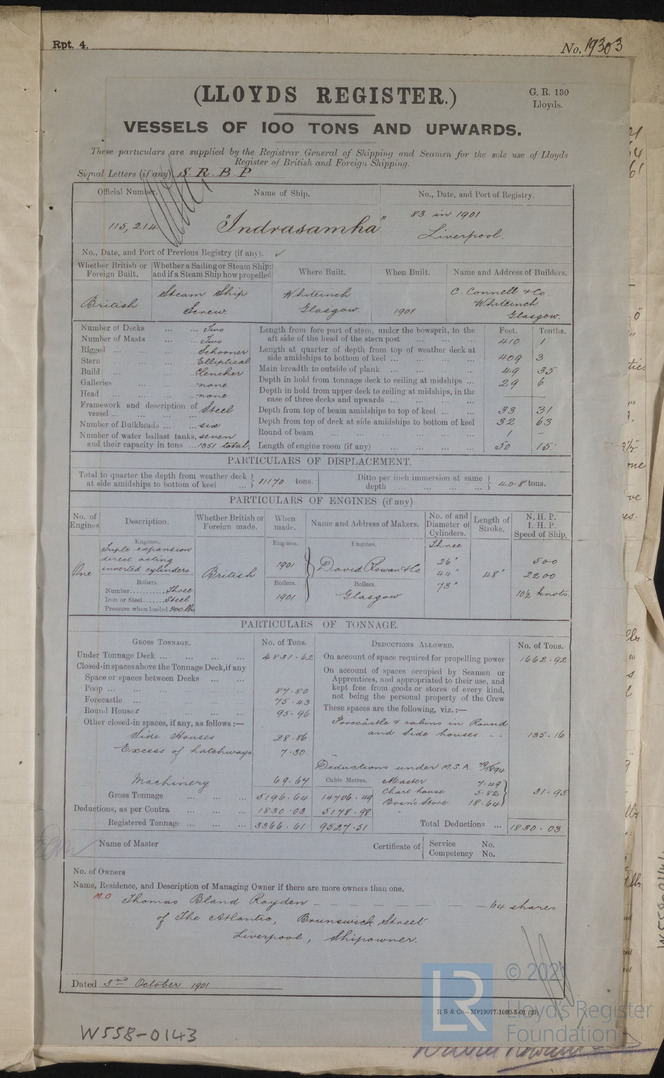 Rpt. 4.
No. 19303
(LLOYDS REGISTER.)
G. R. 130
Lloyds.
VESSELS OF 100 TONS AND UPWARDS.
These particulars are supplied by the Registrar General of Shipping and Seamen for the sole use of Lloyds
Register of British and Foreign Shipping.
Signal Letters (if any) S R B P
Official Number. Name of Ship. No., Date, and Port of Registry.
115,214 "Indrasamha" 83 in 1901
Liverpool.
No., Date, and Port of Previous Registry (if any).
Whether British or Foreign Built. Whether a Sailing or Steam Ship: and if a Steam Ship how propelled Where Built. When Built. Name and Address of Builders.
British Steam Ship Screw Whiteinch Glasgow 1901 C. Connell & Co Whiteinch Glasgow.
Feet. Tenths.
Number of Decks ... ... Two
Number of Masts ... ... Two
Rigged ... ... Schooner
Stern ... ... Elliptical
Build ... ... Clencher
Galleries ... ... none
Head ... ... none
Framework and description of vessel ... Steel
Number of Bulkheads ... six
Number of water ballast tanks, and their capacity in tons ... seven 1351 total,
Length from fore part of stem, under the bowsprit, to the aft side of the head of the stern post 410 1
Length at quarter of depth from top of weather deck at side amidships to bottom of keel 409 3
Main breadth to outside of plank 49 35
Depth in hold from tonnage deck to ceiling at midships 29 6
Depth in hold from upper deck to ceiling at midships, in the case of three decks and upwards
Depth from top of beam amidships to top of keel 33 31
Depth from top of deck at side amidships to bottom of keel 32 63
Round of beam 1 -
Length of engine room (if any) 50 15
PARTICULARS OF DISPLACEMENT.
Total to quarter the depth from weather deck at side amidships to bottom of keel 11170 tons. Ditto per inch immersion at same depth 40.8 tons.
PARTICULARS OF ENGINES (if any).
No. of Engines Description. Whether British or Foreign made. When made. Name and Address of Makers. No. of and Diameter of Cylinders. Length of Stroke. N. H. P. I. H. P. Speed of Ship.
Engines. Engines. Engines. Three
One Triple expansion direct acting inverted cylinders British 1901 David Rowan & Co 26" 44" 73" 48" 500 2200 10½ knots
Boilers. Boilers. Boilers.
Number.......... Three 1901 Glasgow
Iron or Steel...... Steel
Pressure when loaded 200 lbs
PARTICULARS OF TONNAGE.
GROSS TONNAGE. No. of Tons. DEDUCTIONS ALLOWED. No. of Tons.
Under Tonnage Deck 4831.62
Closed-in spaces above the Tonnage Deck, if any
Space or spaces between Decks
Poop 87.80
Forecastle 75.43
Round Houses 95.96
Other closed-in spaces, if any, as follows:—
Side Houses 28.86
Excess of hatchways 7.30
Machinery 69.67
Gross Tonnage 5196.64 14706.49
Deductions, as per Contra 1830.03 5178.98
Registered Tonnage 3366.61 9527.51
On account of space required for propelling power 1662.92
On account of spaces occupied by Seamen or
Apprentices, and appropriated to their use, and
kept free from goods or stores of every kind,
not being the personal property of the Crew
These spaces are the following, viz.:—
Forecastle & cabins in Round
and side houses 135.16
Deductions under M.S.A.
Cubic Metres. Master 7.49
Chart house 5.82
Bosn's Store 18.64
31.95
Total Deductions ... 1830.03
Name of Master Certificate of Service No. Competency No.
No. of Owners
Name, Residence, and Description of Managing Owner if there are more owners than one.
M.O Thomas Bland Royden 64 shares
of The Atlantic, Brunswick Street
Liverpool, Shipowner.
Dated 3rd October 1901
W558-0143
LR
Lloyd's Register
Foundation